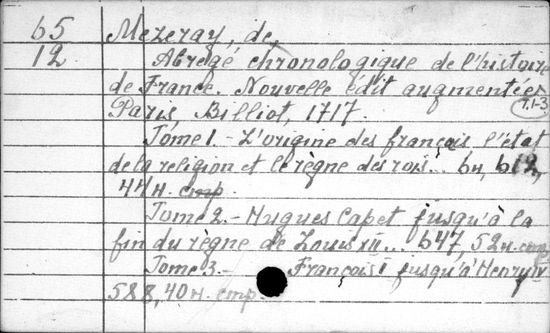 65 Mezeray, de.
12 Abregé chronologique de l'histoire
de France. Nouvelle édit augmentées
T.1-3
Paris, Billiot, 1717.
Tome 1. - L'origine des français, l'état
de la religion et le règne des rois... 6н, 612,
44 н. стр.
Tome 2. - Hugues Capet jusqu'à la
fin du règne de Louis XII... 647, 52 н. стр.
Tome 3. - François I jusqu'à Henry IV
588, 40 н. стр.